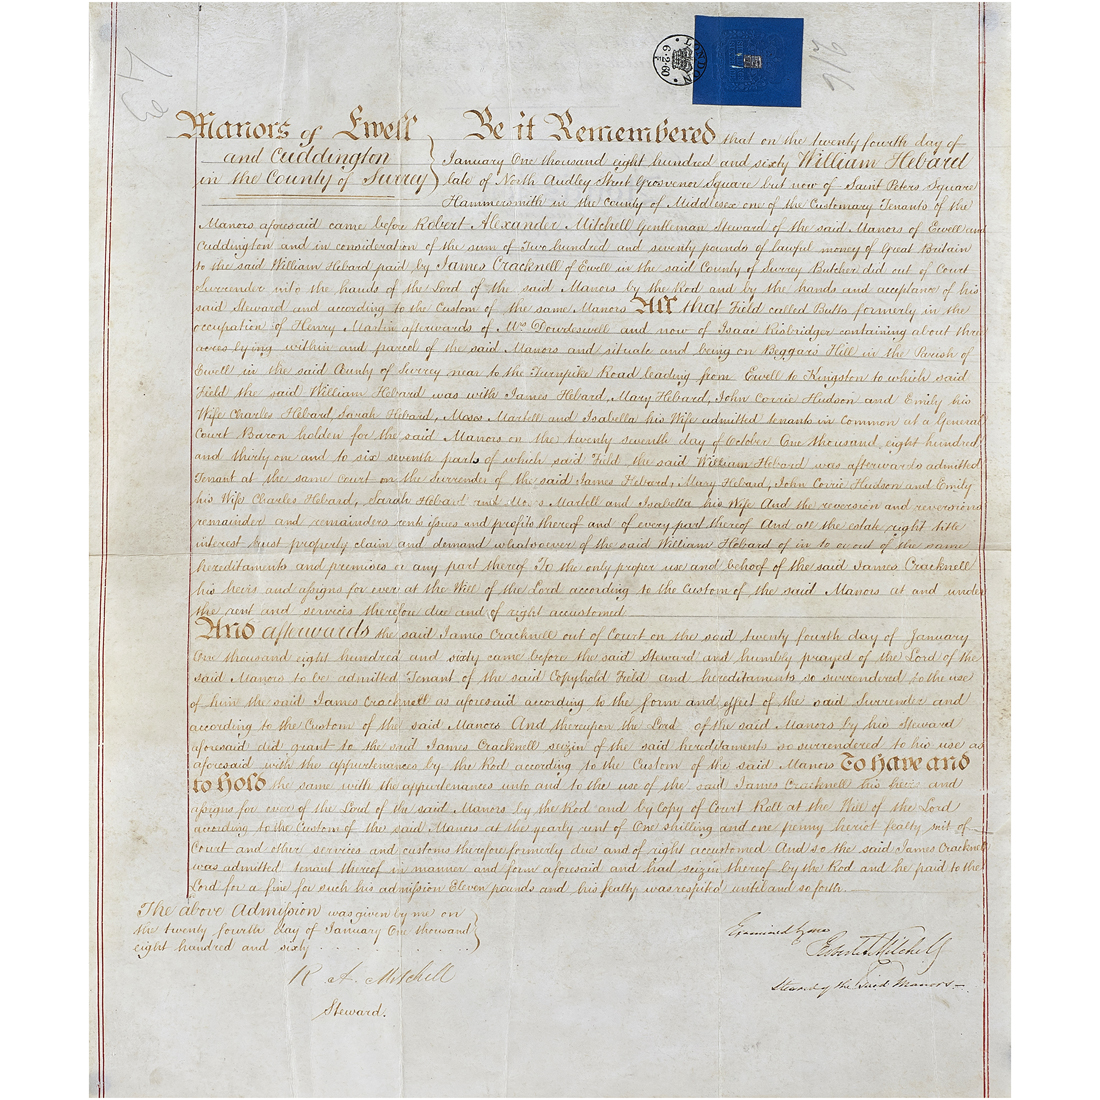 LONDON
6·2·60
Manors of Ewell
and Cuddington
in the County of Surrey
Be it Remembered that on the twenty fourth day of
January One thousand eight hundred and sixty William Hebard
late of North Audley Street Grosvenor Square but now of Saint Peters Square
Hammersmith in the County of Middlesex one of the Customary Tenants of the
Manors aforesaid came before Robert Alexander Mitchell Gentleman Steward of the said Manors of Ewell and
Cuddington and in consideration of the sum of Two hundred and seventy pounds of lawful money of Great Britain
to the said William Hebard paid by James Cracknell of Ewell in the said County of Surrey Butcher did out of Court
Surrender into the hands of the Lord of the said Manors by the Rod and by the hands and acceptance of his
said Steward and according to the Custom of the same Manors All that Field called Butts formerly in the
occupation of Henry Martin afterwards of Mrs Dowdeswell and now of Isaac Risbridger containing about three
acres lying within and parcel of the said Manors and situate and being on Beggars Hill in the Parish of
Ewell in the said County of Surrey near to the Turnpike Road leading from Ewell to Kingston to which said
Field the said William Hebard was with James Hebard, Mary Hebard, John Corrie Hudson and Emily his
Wife Charles Hebard, Sarah Hebard, Moses Martell and Isabella his Wife admitted tenants in Common at a General
Court Baron holden for the said Manors on the twenty seventh day of October One thousand eight hundred
and thirty one and to six seventh parts of which said Field the said William Hebard was afterwards admitted
Tenant at the same Court on the Surrender of the said James Hebard, Mary Hebard, John Corrie Hudson and Emily
his Wife Charles Hebard, Sarah Hebard and Moses Martell and Isabella his Wife And the reversion and reversions
remainder and remainders rents issues and profits thereof and of every part thereof And all the estate right title
interest trust property claim and demand whatsoever of the said William Hebard of in to or out of the same
hereditaments and premises or any part thereof To the only proper use and behoof of the said James Cracknell
his heirs and assigns for ever at the Will of the Lord according to the Custom of the said Manors at and under
the rent and services therefore due and of right accustomed
And afterwards the said James Cracknell out of Court on the said twenty fourth day of January
One thousand eight hundred and sixty came before the said Steward and humbly prayed of the Lord of the
said Manors to be admitted Tenant of the said Copyhold Field and hereditaments so surrendered to the use
of him the said James Cracknell as aforesaid according to the form and effect of the said Surrender and
according to the Custom of the said Manors And thereupon the Lord of the said Manors by his Steward
aforesaid did grant to the said James Cracknell seizin of the said hereditaments so surrendered to his use as
aforesaid with the appurtenances by the Rod according to the Custom of the said Manors To have and
to hold the same with the appurtenances unto and to the use of the said James Cracknell his heirs and
assigns for ever of the Lord of the said Manors by the Rod and by Copy of Court Roll at the Will of the Lord
according to the Custom of the said Manors at the yearly rent of One shilling and one penny heriot fealty suit of
Court and other services and customs therefore formerly due and of right accustomed And so the said James Cracknell
was admitted tenant thereof in manner and form aforesaid and had seizin thereof by the Rod and he paid to the
Lord for a fine for such his admission Eleven pounds and his fealty was respited until and so forth.
The above Admission was given by me on
the twenty fourth day of January One thousand
eight hundred and sixty
R A Mitchell
Steward.
Examined by me
Robert A Mitchell
Steward of the said Manors